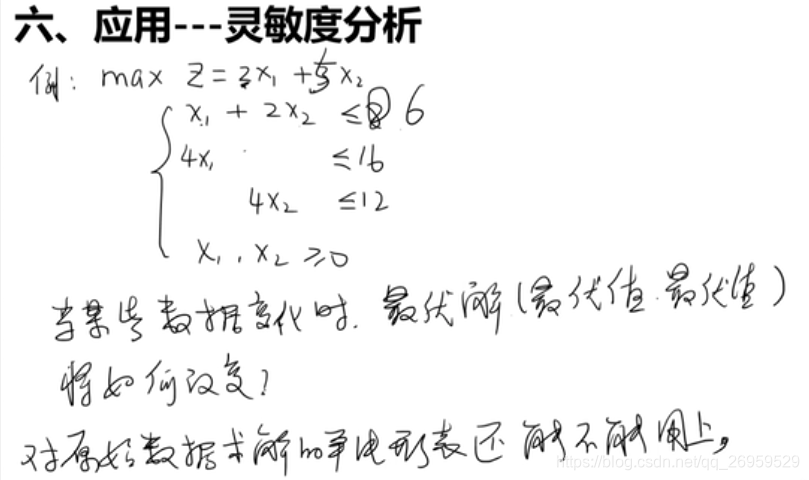 六、应用---灵敏度分析
例: max Z = 2x₁ + 5x₂
x₁ + 2x₂ ≤ 8 6
4x₁ ≤ 16
4x₂ ≤ 12
x₁, x₂ ≥ 0
当某些数据变化时. 最优解(最优值.最优值)
将如何改变?
对原始数据求解的单纯形表还能不能用上。
https://blog.csdn.net/qq_26959529